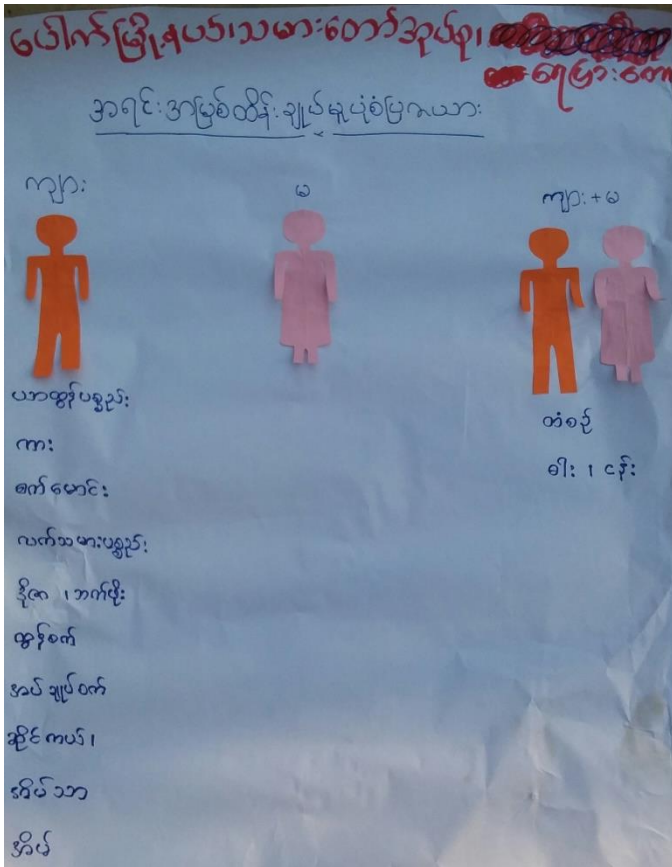 ပေါက်မြို့နယ်၊သမားတော်အုပ်စု၊
ရေပြားတော
အရင်းအမြစ်ထိန်းချုပ်မှုပုံစံပြဇယား
ကျား
မ
ကျား+မ
ယာထွန်ပစ္စည်း
ကား
စက်မောင်း
လက်သမားပစ္စည်း
ဒိုဇာ ၊ ဘက်ဖိုး
ထွန်စက်
အပ်ချုပ်စက်
ဆိုင်ကယ်၊
အိမ်သာ
အိမ်
တံစဉ်
ဓါး ၊ ငန်း